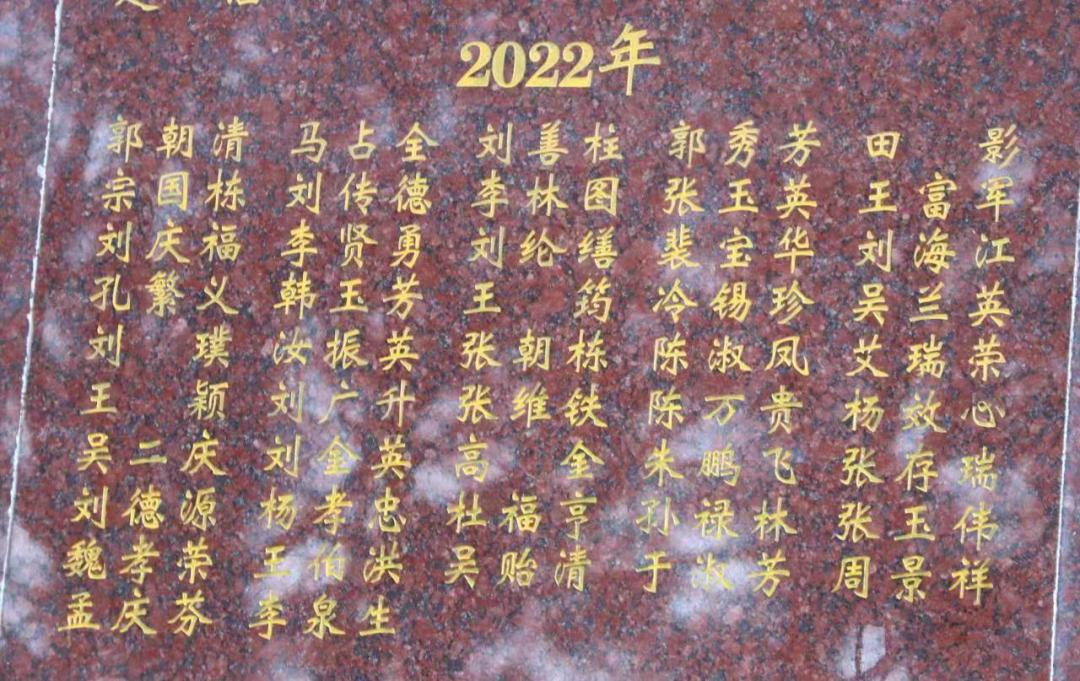 2022年
郭朝清 马占全 刘善柱 郭秀芳 田影
宗国栋 刘传德 李林图 张玉英 王富军
刘庆福 李贤勇 刘纶缮 裴宝华 刘海江
孔繁义 韩玉芳 王筠 冷锡珍 吴兰英
刘璞 汝振英 张朝栋 陈淑凤 艾瑞荣
王颖 刘广升 张维铁 陈万贵 杨效心
吴二庆 刘金英 高金 朱鹏飞 张存瑞
刘德源 杨孝忠 杜福亨 孙禄林 张玉伟
魏孝荣 王伯洪 吴贻清 于淑芳 周景祥
孟庆芬 李泉生